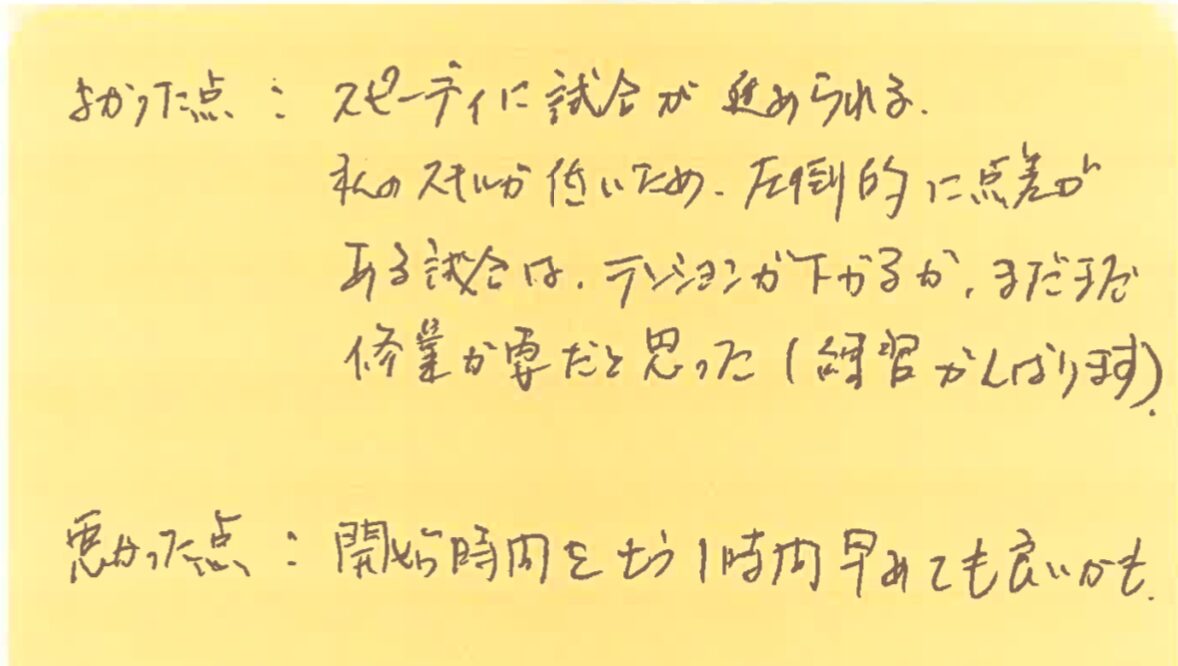 よかった点：スピーディに試合が進められる.
私のスキルが低いため、圧倒的に点差が
ある試合は、テンションが下がるが、まだまだ
修業が要だと思った(練習がんばります).
悪かった点：開始時間をもう1時間早めても良いかも.